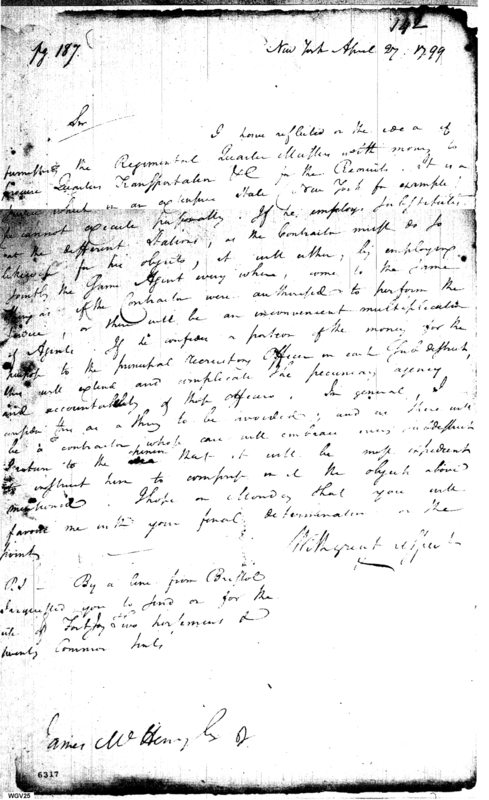 142
pg 187
New York April 27. 1799
Sir
I have reflected on the idea of
furnishing the Regimental Quarter Masters with money to
procure Quarters Transportation &c for the Recruits. It is a
which in an extensive State, New York for example,
he cannot execute personally. If he employs Substitutes
at the different Stations, as the Contractor must do so
likewise for his objects, it will either, by employing
jointly the same Agent every where, come to the same
thing as if the Contractor were authorised to perform the
service, or there will be an inconvenient multiplication
of Agents. If he confides a portion of the money for the
purpose to the principal recruiting Officer in each Subdistrict,
this will extend and complicate the pecuniary agency
and accountability of those officers. In general, I
consider this as a thing to be avoided; and as there will
be a contractor, whose care will embrace every subdistrict
I return to the opinion that it will be most expedient
to instruct him to comprise in it the objects above
mentioned. I hope on Monday that you will
favour me with your final determination on the
point
With great respect
P.S - By a line from Bristol
I requested you to send on for the
use of Forty Two horsemens &
twenty Common tents
James McHenry Esq
6317
WGV25